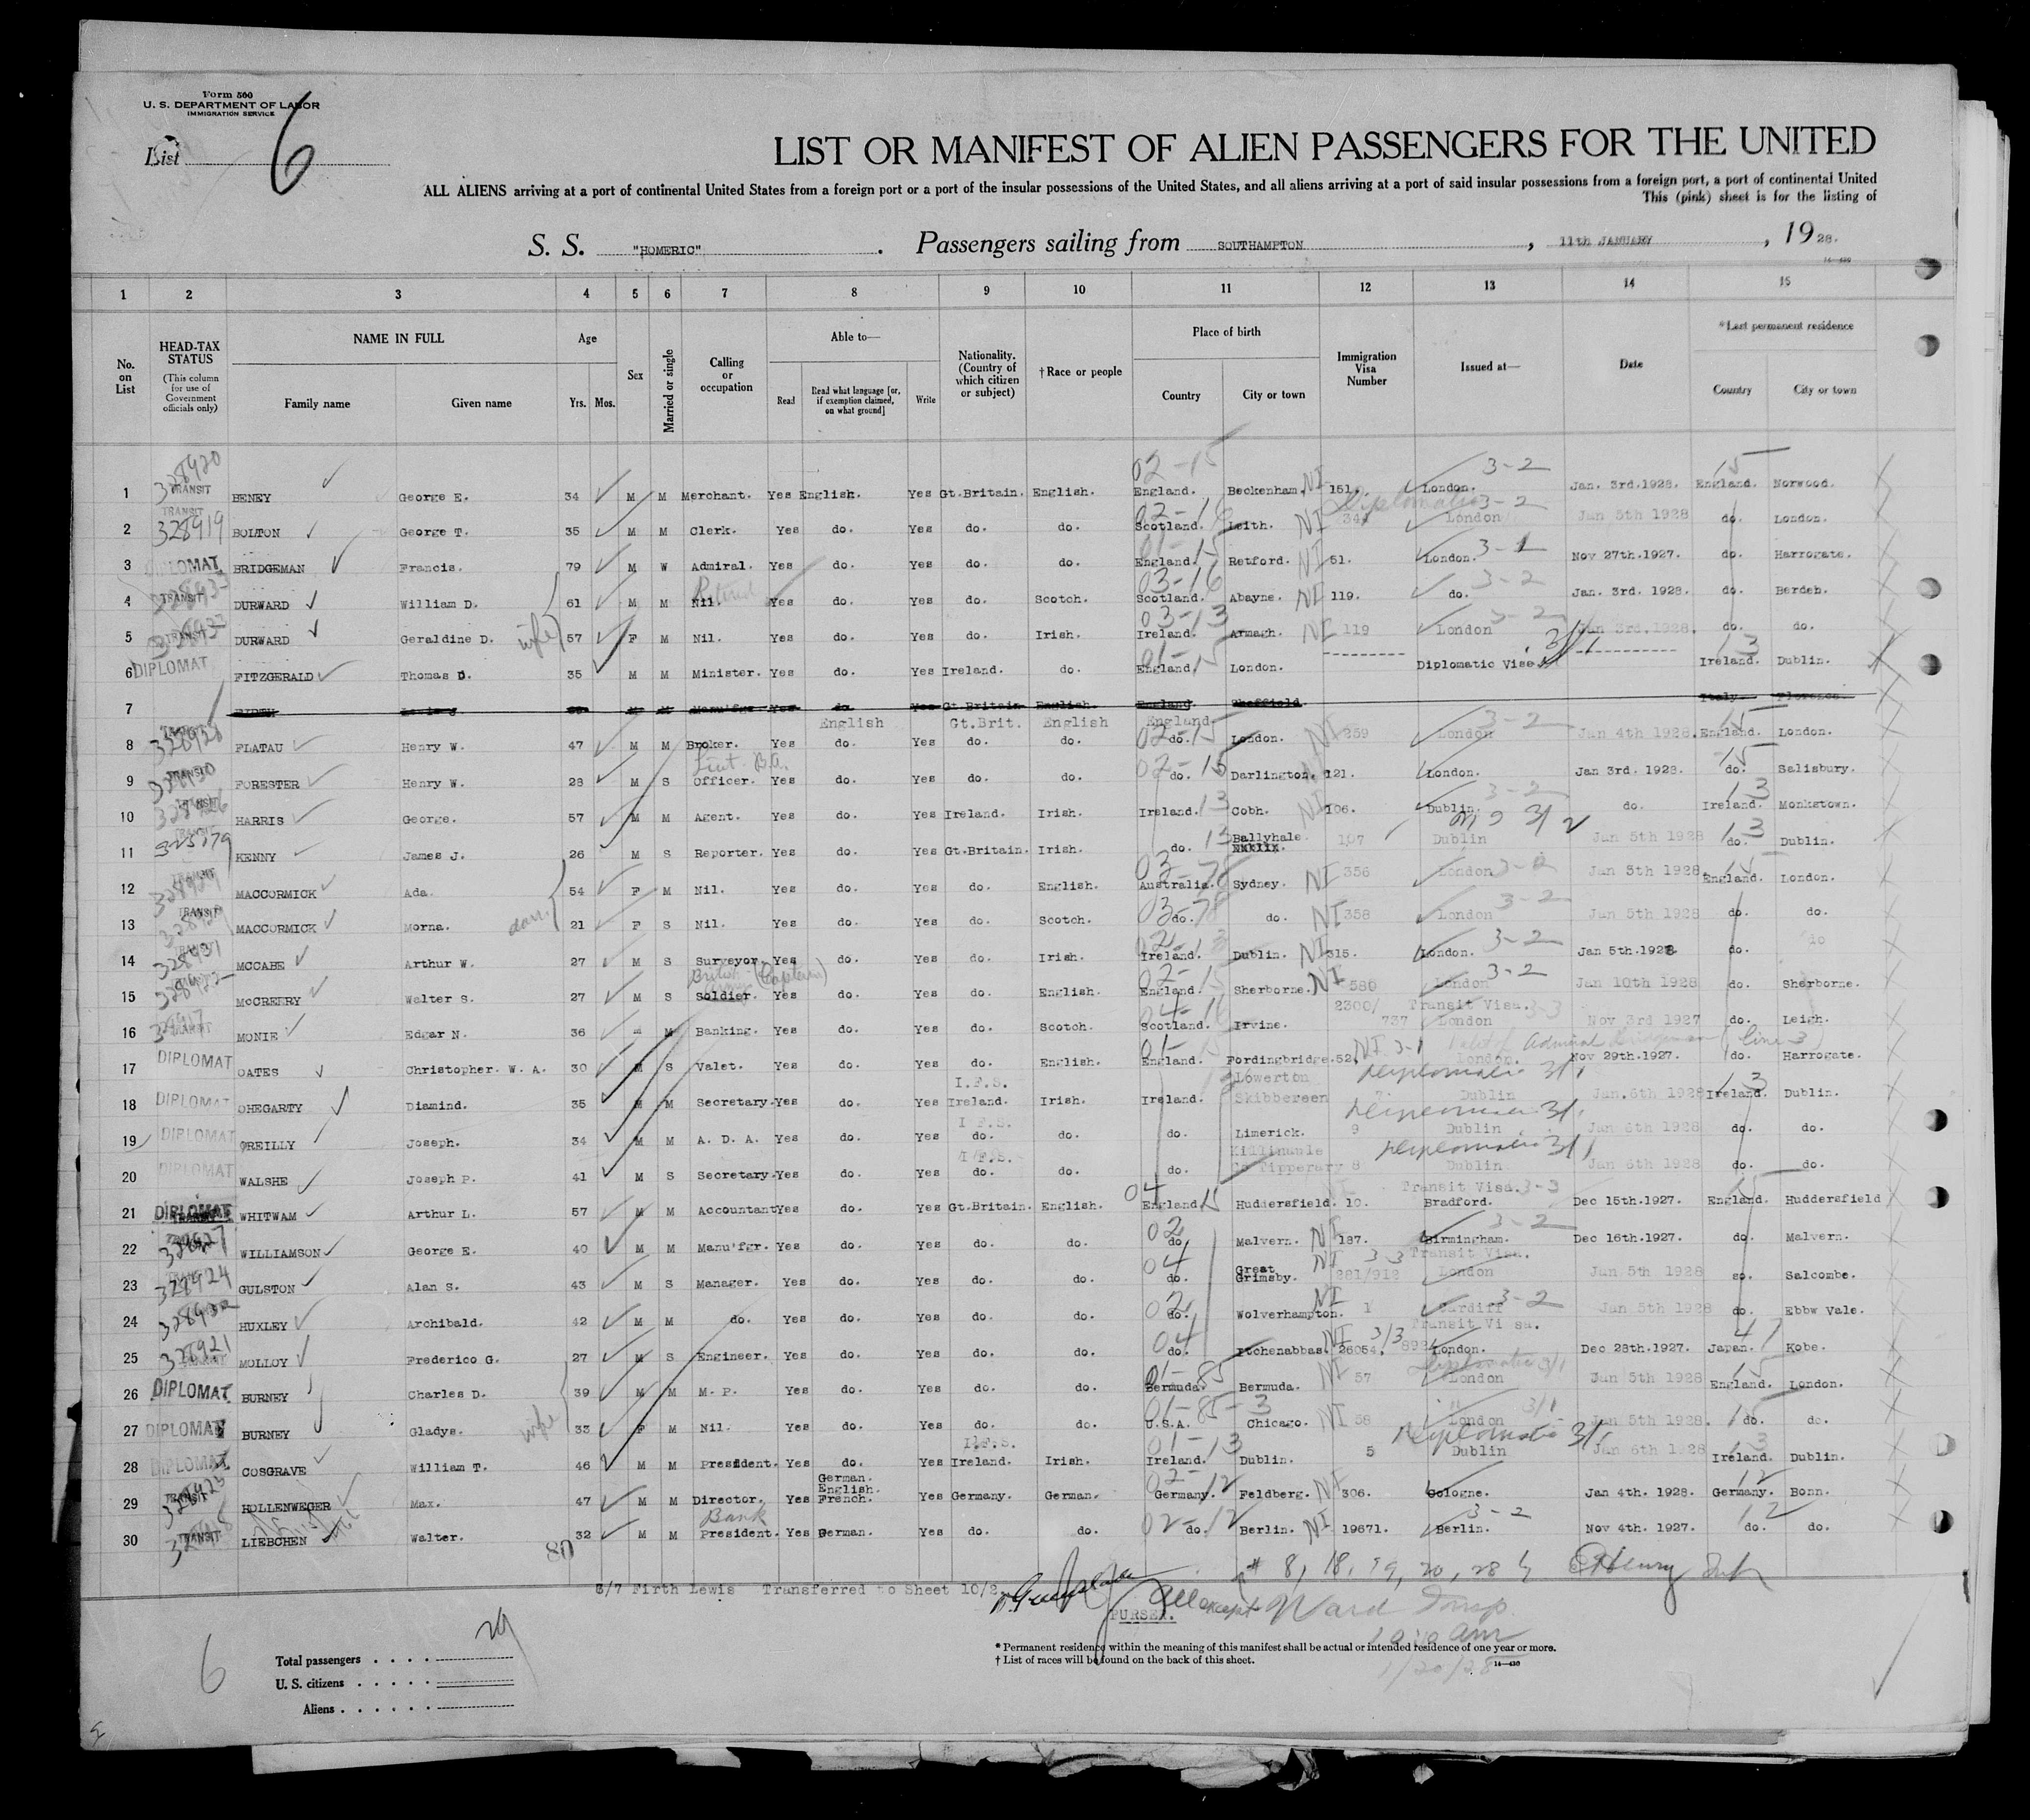 Form 500
U. S. DEPARTMENT OF LABOR
IMMIGRATION SERVICE
List 6
LIST OR MANIFEST OF ALIEN PASSENGERS FOR THE UNITED
ALL ALIENS arriving at a port of continental United States from a foreign port or a port of the insular possessions of the United States, and all aliens arriving at a port of said insular possessions from a foreign port, a port of continental United
This (pink) sheet is for the listing of
S. S. "HOMERIC". Passengers sailing from SOUTHAMPTON, 11th JANUARY, 1928.
1 2 3 4 5 6 7 8 9 10 11 12 13 14 15
No. on List HEAD-TAX STATUS (This column for use of Government officials only) NAME IN FULL Family name Given name Age Yrs. Mos. Sex Married or single Calling or occupation Able to— Read Read what language [or, if exemption claimed, on what ground] Write Nationality. (Country of which citizen or subject) †Race or people Place of birth Country City or town Immigration Visa Number Issued at— Date *Last permanent residence Country City or town
1 328920 TRANSIT BENEY George E. 34 M M Merchant. Yes English. Yes Gt.Britain. English. 02-15 England. Beckenham. NI 151. London. 3-2 Jan. 3rd.1928. 15 England. Norwood.
2 TRANSIT 328919 BOLTON George T. 35 M M Clerk. Yes do. Yes do. do. 02-16 Scotland. Leith. NI Diplomatic London 3-2 Jan 5th 1928 do. London.
3 DIPLOMAT BRIDGEMAN Francis. 79 M W Admiral. Yes do. Yes do. do. 01-15 England. Retford. NI 51. London. 3-1 Nov 27th.1927. do. Harrogate.
4 TRANSIT DURWARD William D. 61 M M Retired Nil. Yes do. Yes do. Scotch. 03-16 Scotland. Abayne. NI 119. do. 3-2 Jan. 3rd. 1928. do. Berdeh.
5 TRANSIT DURWARD Geraldine D. wife 57 F M Nil. Yes do. Yes do. Irish. 03-13 Ireland. Armagh. NI 119 London 3-2 Jan 3rd.1928. do. do.
6 DIPLOMAT FITZGERALD Thomas D. 35 M M Minister. Yes do. Yes Ireland. do. 01-15 England. London. Diplomatic Vise 3/1 13 Ireland. Dublin.
7 Manu'fgr Yes do. Yes Gt.Britain English. England Sheffield. Italy. Florence.
8 TRANSIT 328928 FLATAU Henry W. 47 M M Broker. Yes English do. Yes Gt.Brit. do. English do. England 02-15 do. London. NI 259 London 3-2 Jan 4th 1928. 15 England. London.
9 TRANSIT FORESTER Henry W. 28 M S Lieut. B.A. Officer. Yes do. Yes do. do. 02-15 do. Darlington. 121. London. Jan 3rd. 1928. 15 do. Salisbury.
10 TRANSIT HARRIS George. 57 M M Agent. Yes do. Yes Ireland. Irish. Ireland. 13 Cobh. NI 106. Dublin. 3-2 do. 13 Ireland. Monkstown.
11 TRANSIT KENNY James J. 26 M S Reporter. Yes do. Yes Gt.Britain. Irish. do. 13 Ballyhale 107 Dublin 3/2 Jan 5th 1928 13 do. Dublin.
12 TRANSIT MACCORMICK Ada. 54 F M Nil. Yes do. Yes do. English. 03-78 Australia. Sydney. NI 356 London 3-2 Jan 5th 1928. 15 England. London.
13 TRANSIT MACCORMICK Morna. dau. 21 F S Nil. Yes do. Yes do. Scotch. 03-78 do. do. NI 358 London 3-2 Jan 5th 1928 do. do.
14 TRANSIT 328931 MCCABE Arthur W. 27 M S Surveyor. Yes do. Yes do. Irish. 02-13 Ireland. Dublin. NI 315. London. 3-2 Jan 5th.1928 do. do
15 TRANSIT McCREERY Walter S. 27 M S British Army (Captain) Soldier. Yes do. Yes do. English. 02-15 England. Sherborne. NI 580 London 3-2 Jan 10th 1928 do. Sherborne.
16 TRANSIT MONIE Edgar N. 36 M M Banking. Yes do. Yes do. Scotch. 04-16 Scotland. Irvine. 2300/737 Transit Visa. London 3-3 Nov 3rd 1927 do. Leigh.
17 DIPLOMAT OATES Christopher. W. A. 30 M S Valet. Yes do. Yes do. English. 01-15 England. Fordingbridge. 52. NI 3-1 Valet of Admiral Bridgeman (line 3) London. Nov 29th.1927. do. Harrogate.
18 DIPLOMAT OHEGARTY Diamind. 35 M M Secretary. Yes do. Yes I.F.S. Ireland. Irish. Ireland. Lowerton Skibbereen 7 Diplomatic 3/1 Dublin Jan.6th 1928 13 Ireland. Dublin.
19 DIPLOMAT OREILLY Joseph. 34 M M A. D. A. Yes do. Yes I F.S. do. do. do. Limerick. 9 Diplomatic 3/1 Dublin Jan 6th 1928 do. do.
20 DIPLOMAT WALSHE Joseph P. 41 M S Secretary. Yes do. Yes I.F.S. do. do. do. Killinaule Co Tipperary 8 Diplomatic 3/1 Dublin Jan 6th 1928 do. do.
21 DIPLOMAT WHITWAM Arthur L. 57 M M Accountant Yes do. Yes Gt.Britain. English. 04 England 15 Huddersfield. 10. Transit Visa. 3-3 Bradford. Dec 15th.1927. 15 England. Huddersfield
22 WILLIAMSON George E. 40 M M Manu'fgr. Yes do. Yes do. do. 02 do. Malvern. NI 187. Birmingham. 3-2 Dec 16th.1927. do. Malvern.
23 328924 GULSTON Alan S. 43 M S Manager. Yes do. Yes do. do. 04 do. Great Grimsby. NI 281/912 3-3 Transit Visa. London Jan 5th 1928 so. Salcombe.
24 328932 HUXLEY Archibald. 42 M M do. Yes do. Yes do. do. 02 do. Wolverhampton. NI 1 Cardiff 3-2 Jan 5th 1928 do. Ebbw Vale.
25 328921 MOLLOY Frederico G. 27 M S Engineer. Yes do. Yes do. do. 04 do. Itchenabbas. NI 26054. 3/3 Transit Visa. London. Dec 28th.1927. 41 Japan. Kobe.
26 DIPLOMAT BURNEY Charles D. 39 M M M. P. Yes do. Yes do. do. 01-85 Bermuda. Bermuda. NI 57 Diplomatic 3/1 London Jan 5th 1928 15 England. London.
27 DIPLOMAT BURNEY Gladys. wife 33 F M Nil. Yes do. Yes do. do. 01-85-3 U.S.A. Chicago. NI 58 " 3/1 London Jan 5th 1928. 15 do. do.
28 DIPLOMAT COSGRAVE William T. 46 M M President. Yes do. Yes I.F.S. Ireland. Irish. 01-13 Ireland. Dublin. 5 Diplomatic 3/1 Dublin Jan 6th 1928 13 Ireland. Dublin.
29 TRANSIT HOLLENWEGER Max. 47 M M Director. Yes German. English. French. Yes Germany. German. 02-12 Germany. Feldberg. NI 306. Cologne. Jan 4th. 1928. 12 Germany. Bonn.
30 TRANSIT LIEBCHEN Walter. 32 M M Bank President. Yes German. Yes do. do. 02-12 do. Berlin. NI 19671. Berlin. 3-2 Nov 4th. 1927. 12 do. do.
80
6/7 Firth Lewis Transferred to Sheet 10/2
# 8, 18, 19, 20, 28
PURSER.
All except Ward Insp.
10:10 am
1/20/28
6
29
Total passengers
U. S. citizens
Aliens
* Permanent residence within the meaning of this manifest shall be actual or intended residence of one year or more.
† List of races will be found on the back of this sheet.